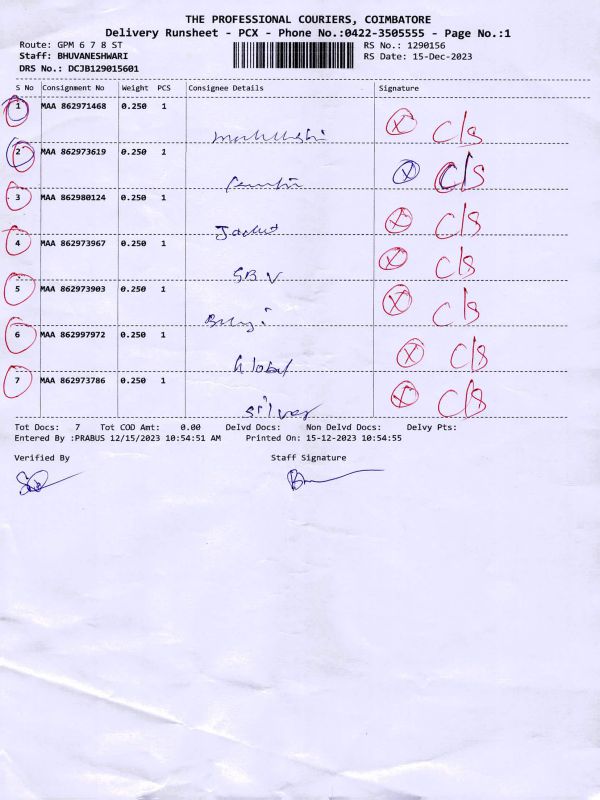 THE PROFESSIONAL COURIERS, COIMBATORE
Delivery Runsheet - PCX - Phone No.:0422-3505555 - Page No.:1
Route: GPM 6 7 8 ST RS No.: 1290156
Staff: BHUVANESHWARI RS Date: 15-Dec-2023
DRS No.: DCJB129015601
S No Consignment No Weight PCS Consignee Details Signature
1 MAA 862971468 0.250 1 C/s
2 MAA 862973619 0.250 1 C/s
3 MAA 862980124 0.250 1 C/s
4 MAA 862973967 0.250 1 C/s
SBV
5 MAA 862973903 0.250 1 C/s
6 MAA 862997972 0.250 1 C/s
Global
7 MAA 862973786 0.250 1 C/s
Silver
Tot Docs: 7 Tot COD Amt: 0.00 Delvd Docs: Non Delvd Docs: Delvy Pts:
Entered By :PRABUS 12/15/2023 10:54:51 AM Printed On: 15-12-2023 10:54:55
Verified By Staff Signature